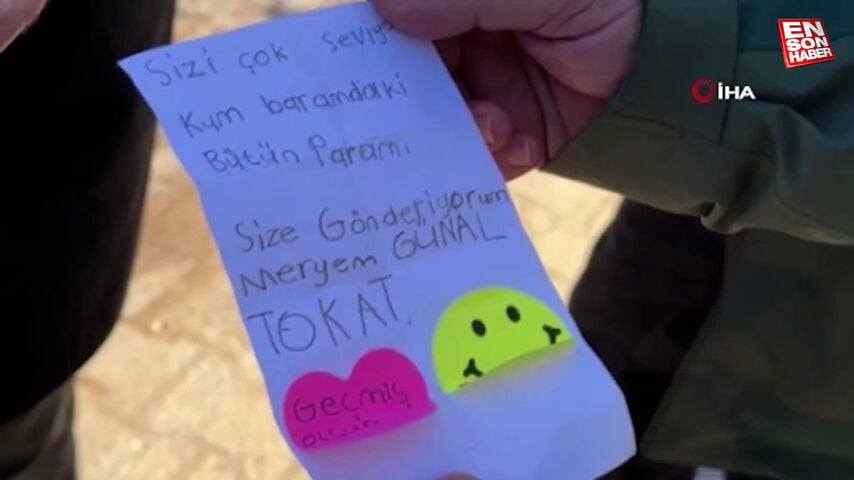 EN
SON
HABER
İHA
Sizi çok seviyo
Kum baramdaki
Bütün Paramı
Size Gönderiyorum
Meryem GÜNAL
TOKAT.
Geçmiş
olsun